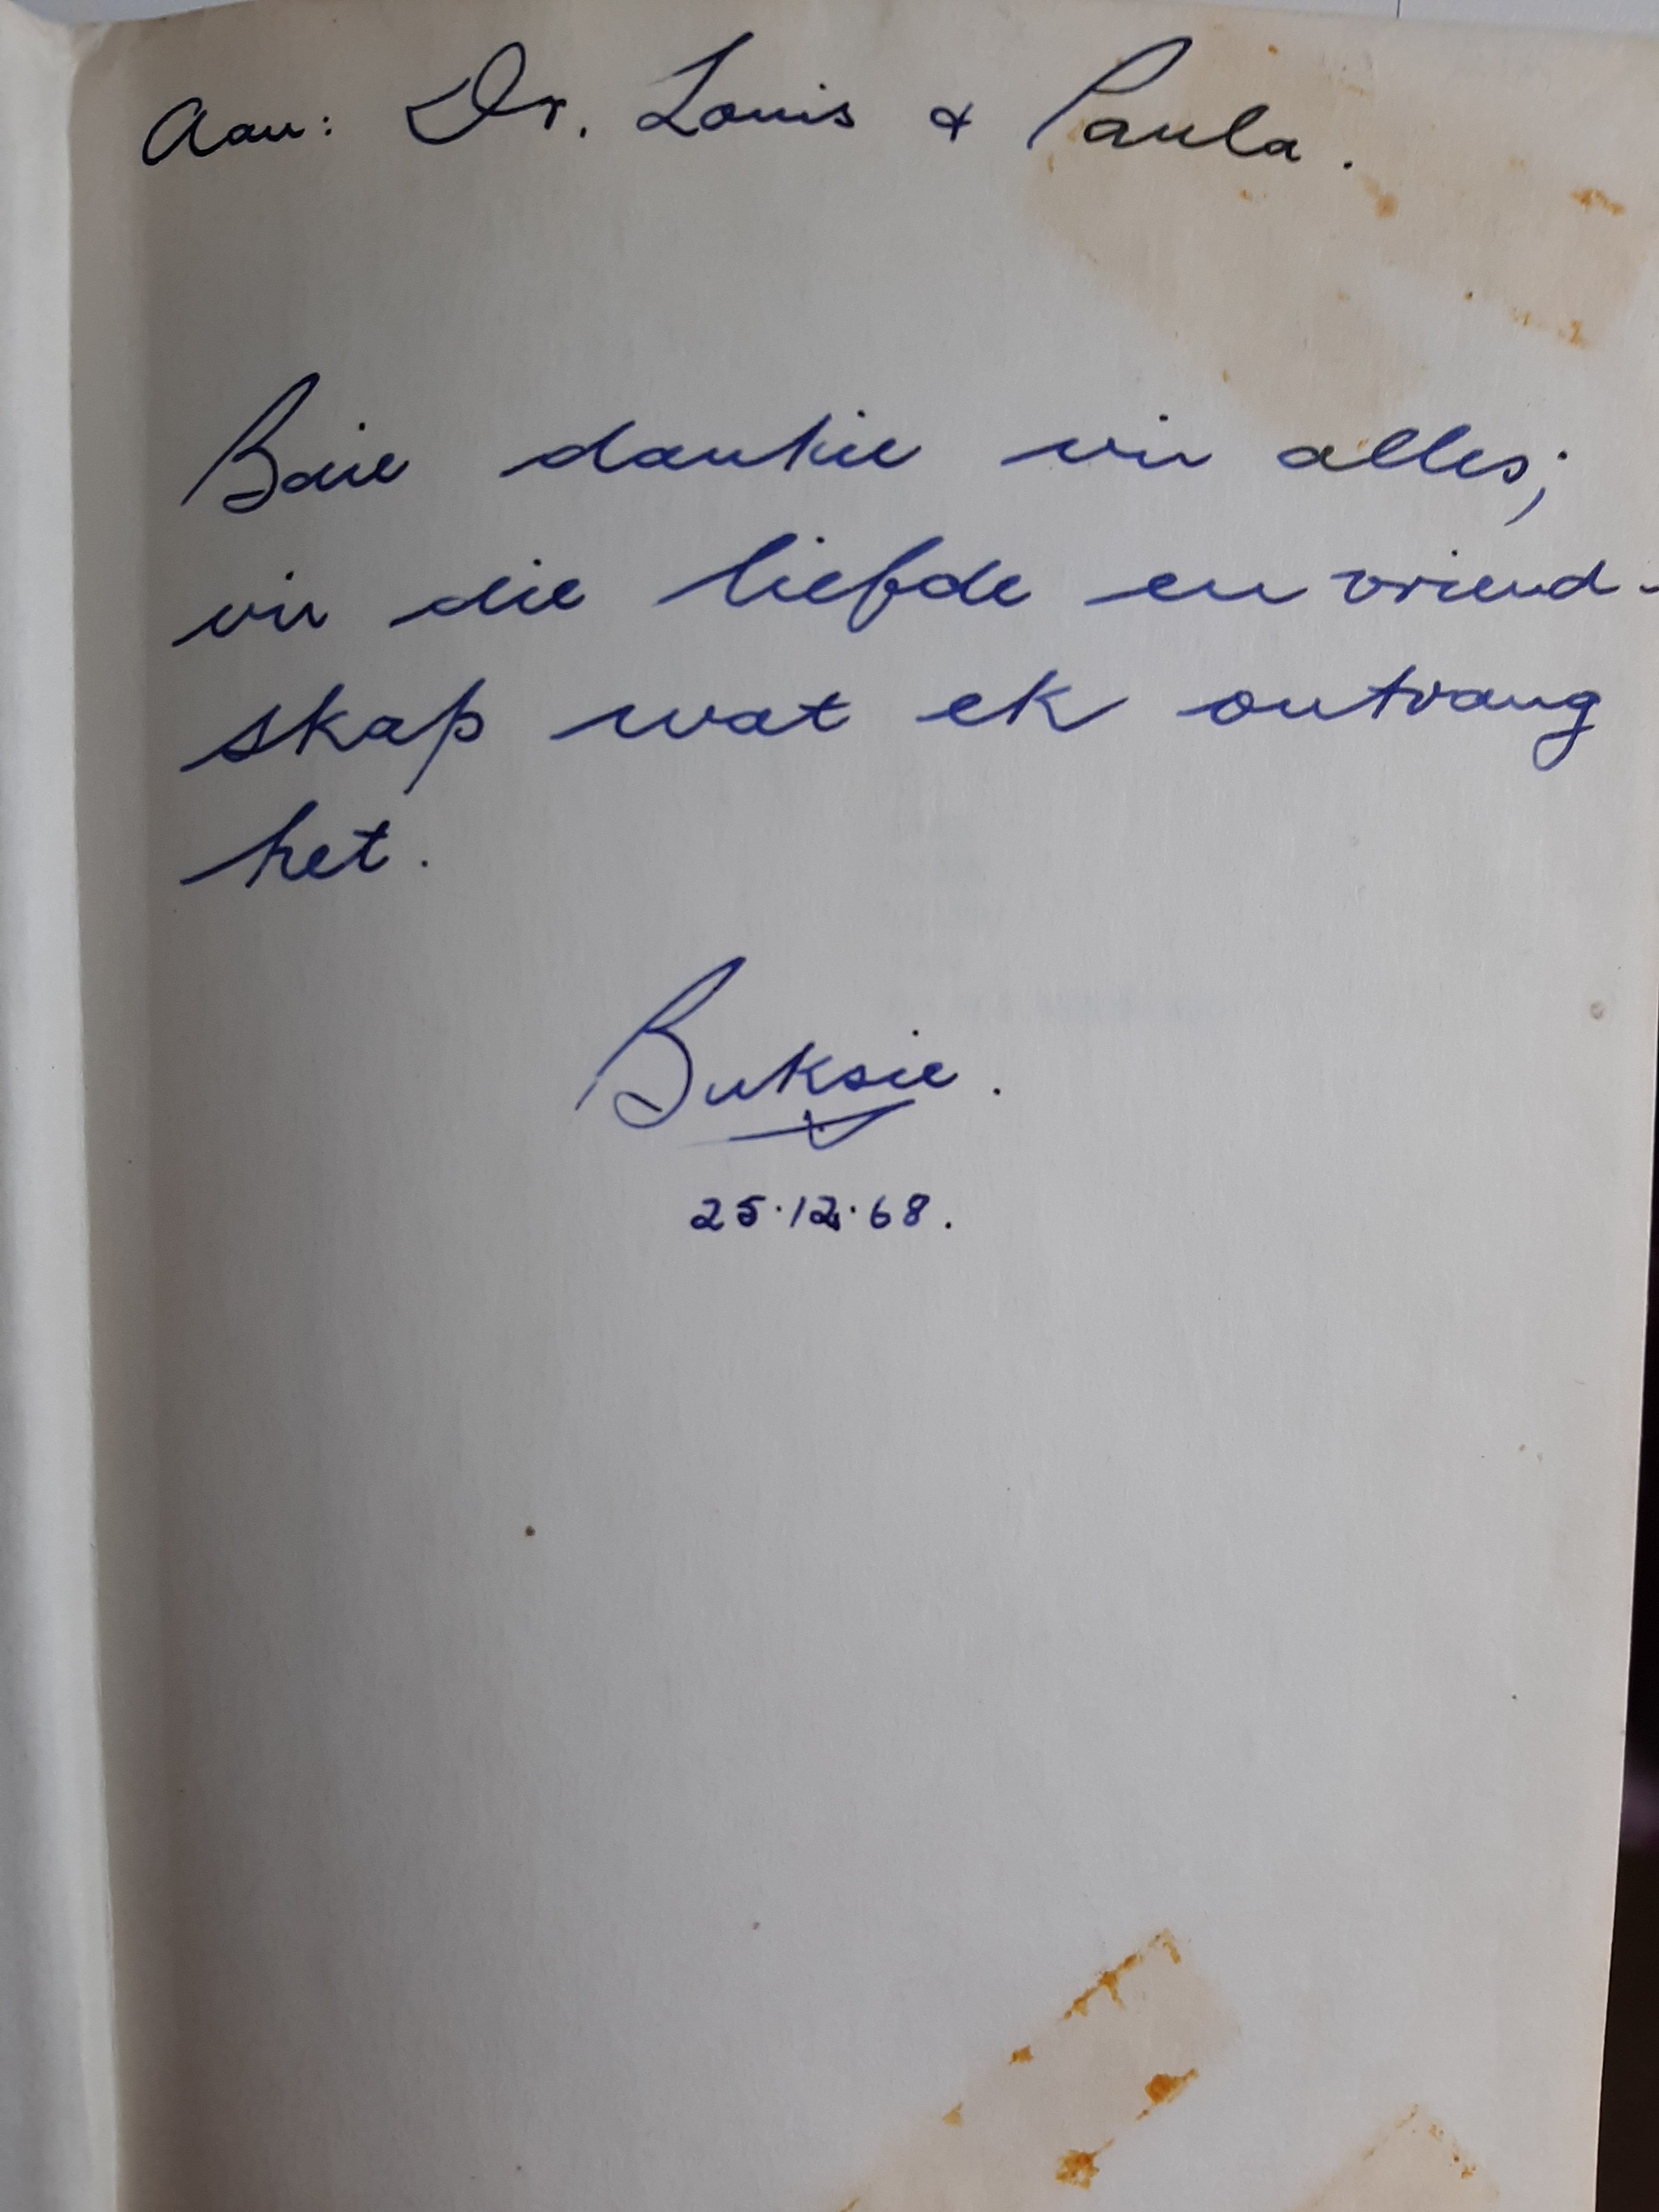 Aan: Dr. Louis & Paula.
Baie dankie vir alles;
vir die liefde en vriend-
skap wat ek ontvang
het.
Buksie.
25.12.68.